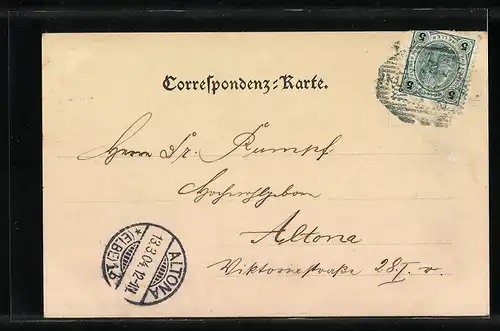 5 HELLER 5
5 5
Correspondenz-Karte.
Herrn Dr. Rumpf.
Hochwohlgeboren
Altona
Viktoriastraße 28 I. v.
ALTONA
13.3.04. 12-1N.
*(ELBE)1b